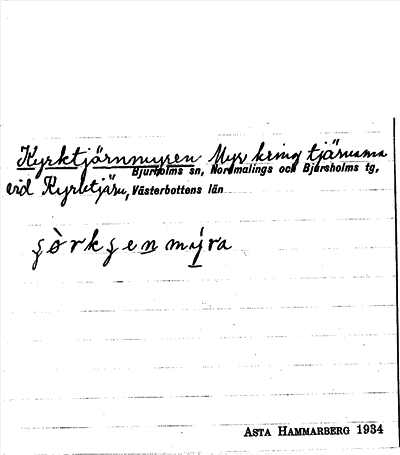 Kyrktjärnmyren Myr kring tjärnarna
Bjurholms sn, Nordmalings och Bjursholms tg,
vid Kyrktjärn, Västerbottens län
ʂòrkʂen mýra
ASTA HAMMARBERG 1934